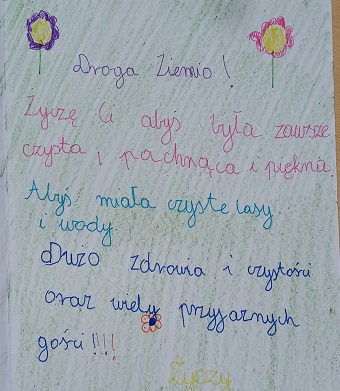 Droga Ziemio!
Życzę Ci abyś była zawsze
czysta i pachnąca i piękna.
Abyś miała czyste lasy
i wody.
Dużo zdrowia i czystości
oraz wielu przyjaznych
gości!!!!
Życzy